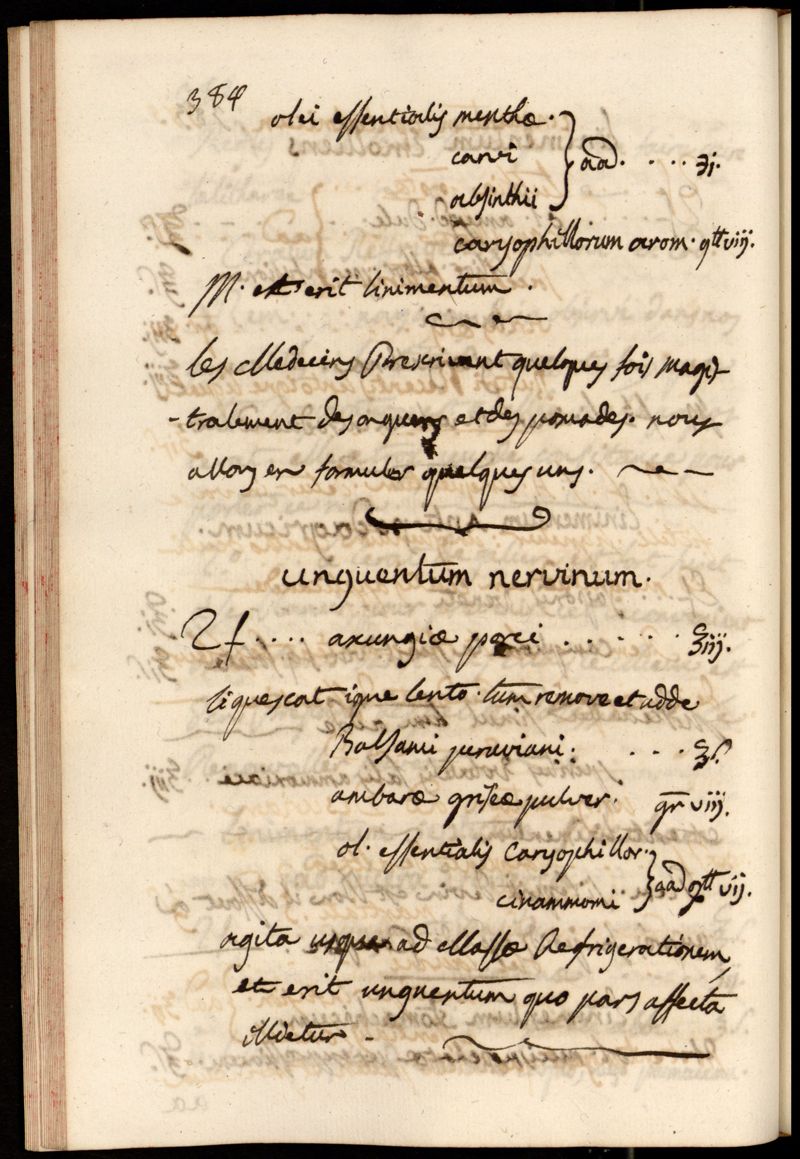 384
olei essentialis menthæ.
carvi } aad. . . . . ʒj.
absinthii
caryophillorum arom. gtt viij.
M. et erit linimentum.
les Medecins Prescrivent quelques fois magis-
-tralement des onguens et des pomades. nous
allons en formuler quelques uns.
unguentum nervinum.
♃ . . . . axungiæ porci . . . . . . ℥iij.
liquescat igne lento. tum remove et adde
Balsami peruviani. . . . . ℥ſ.
ambaræ griseæ pulver. gr viij.
ol. essentialis Caryophillor. } aad gtt vij.
cinammomi
agita usque ad Massæ Refrigerationem,
et erit unguentum quo pars affecta
illietur.